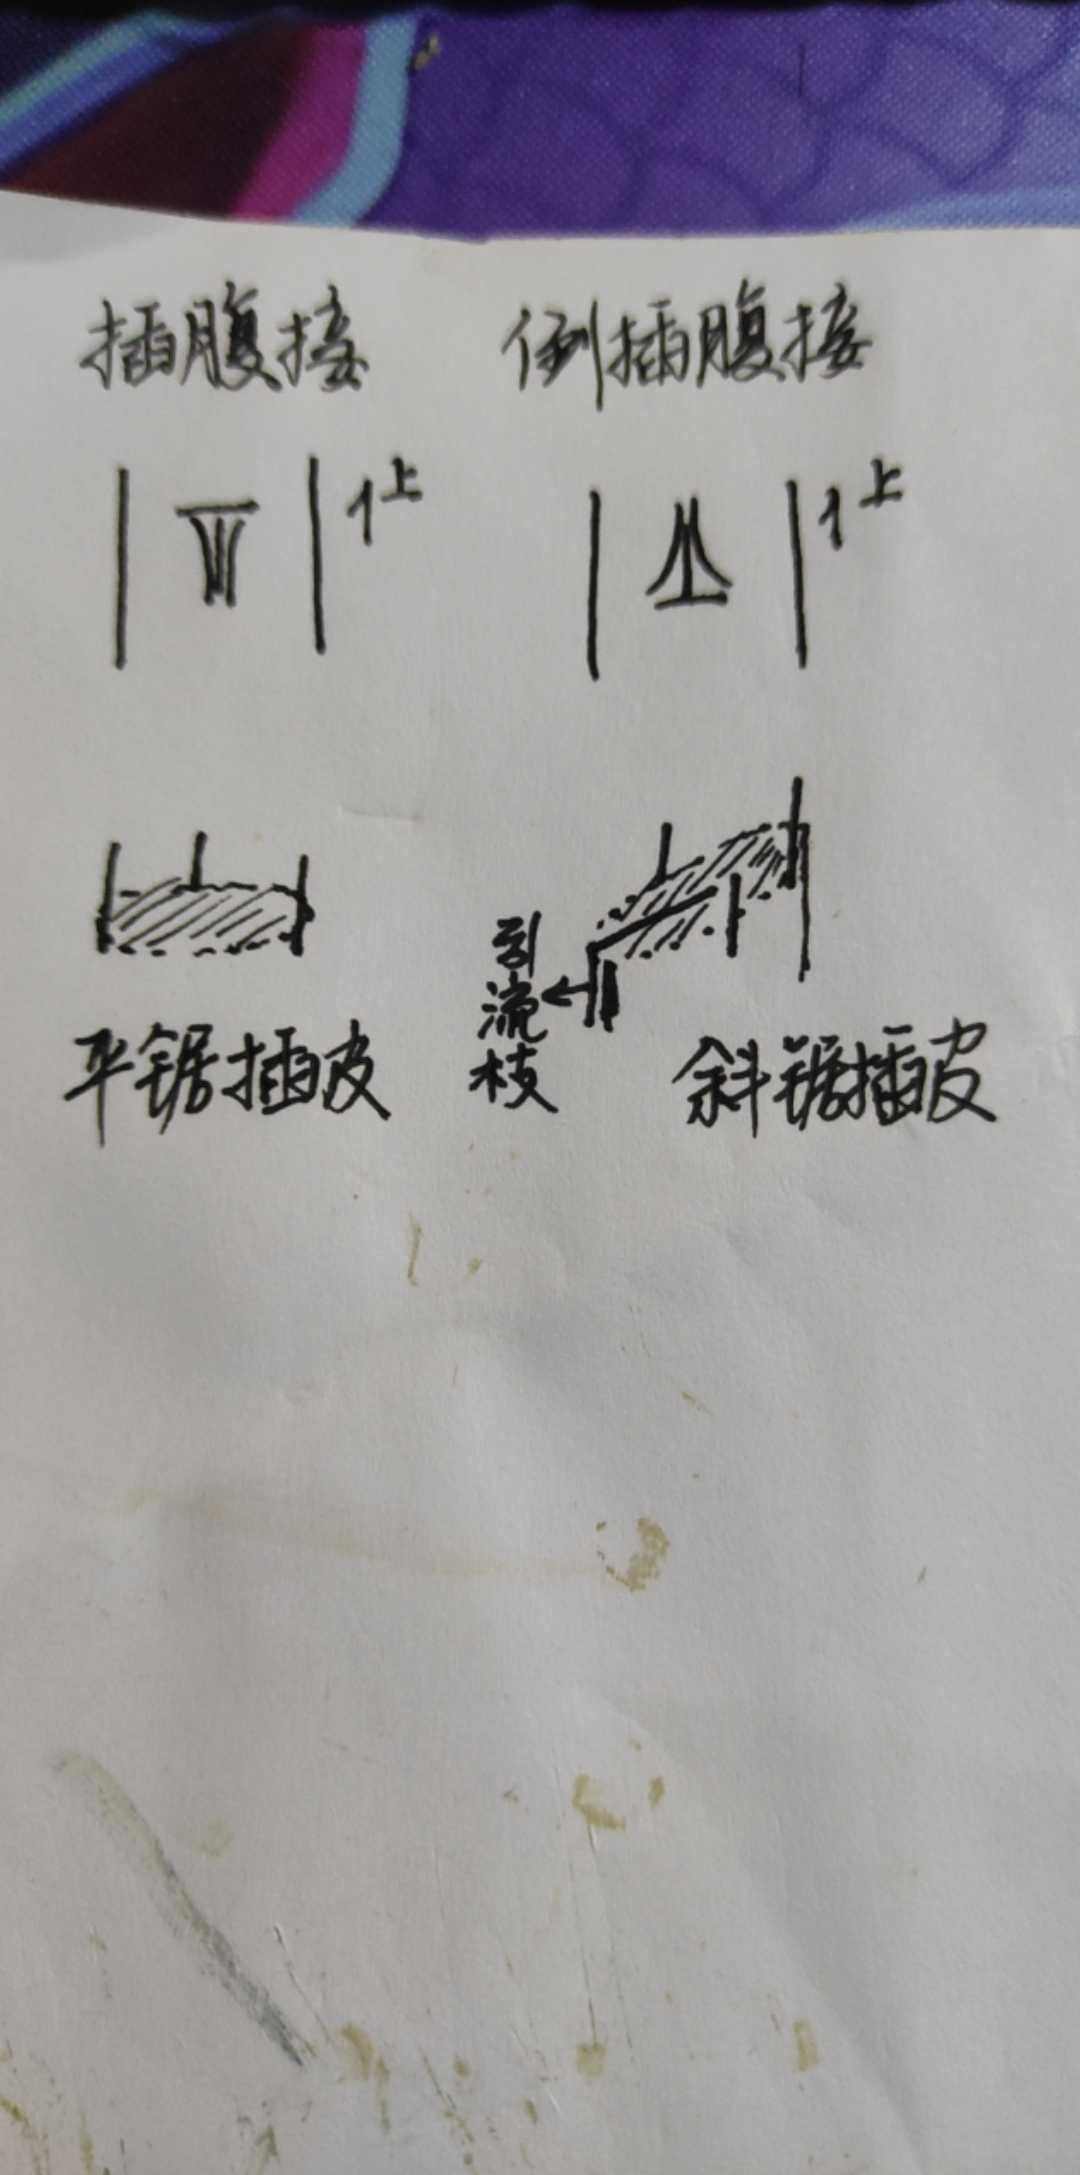 插腹接 倒插腹接
↑上 ↑上
引流枝
平锯插皮 斜锯插皮